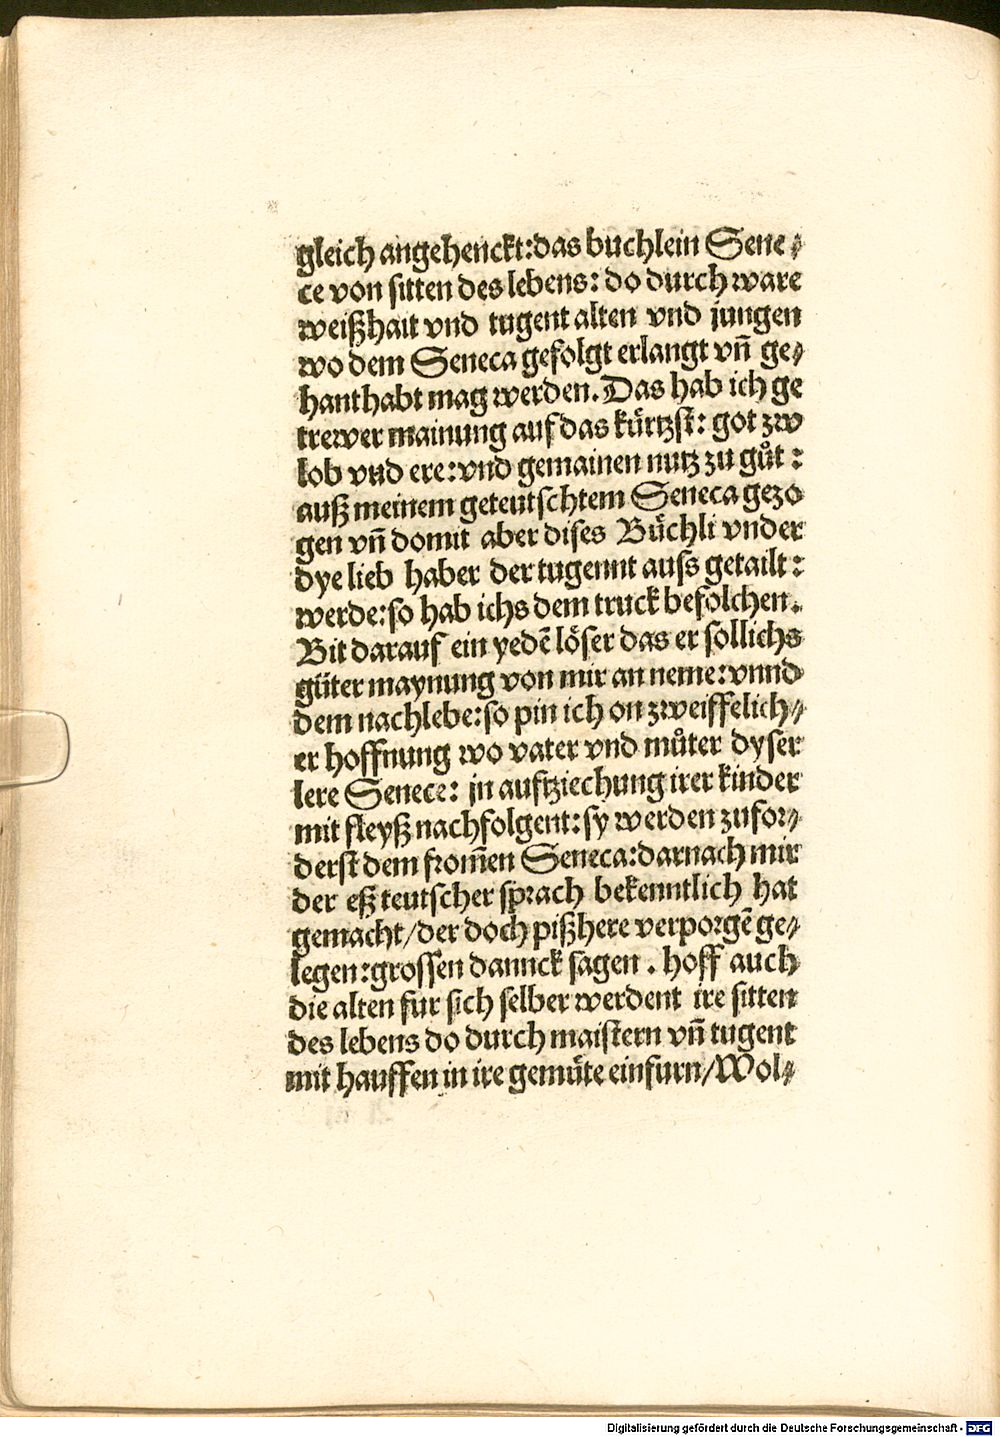 gleich angehenckt:das buchlein Sene⸗
ce von sitten des lebens: do durch ware
weißhait vnd tugent alten vnd jungen
wo dem Seneca gefolgt erlangt vn̄ ge⸗
hanthabt mag werden. Das hab ich ge
trewer mainung auf das kürtzst: got zw
lob vnd ere:vnd gemainen nutz zu gůt :
auß meinem geteutschtem Seneca gezo
gen vn̄ domit aber dises Büchli vnder
dye lieb haber der tugennt auss getailt :
werde:so hab ichs dem truck befolchen.
Bit darauf ein yedē löser das er sollichs
güter maynung von mir an neme:vnnd
dem nachlebe:so pin ich on zweiffelich⸗
er hoffnung wo vater vnd můter dyser
lere Senece: jn auftziechung irer kinder
mit fleyß nachfolgent:sy werden zufor⸗
derst dem from̄en Seneca:darnach mir
der eß teutscher sprach bekenntlich hat
gemacht/der doch pißhere verporgē ge⸗
legen:grossen dannck sagen . hoff auch
die alten fur sich selber werdent ire sitten
des lebens do durch maistern vn̄ tugent
mit hauffen in ire gemüte einfurn/Wol⸗
Digitalisierung gefördert durch die Deutsche Forschungsgemeinschaft - DFG